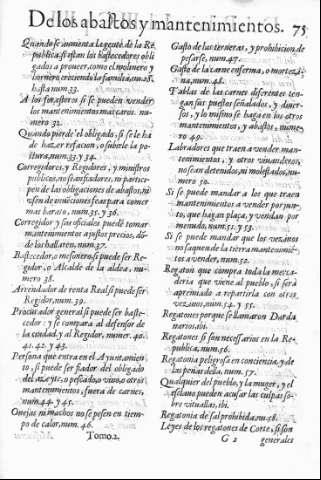 De los abastos y mantenimientos. 75
Quando se aumenta la gente de la Re
publica, si estan los bastecedores obli
gados a proueer, como el molinero y
hasta num.33.
A los forasteros si se pueden vender
los mantenimientos mas caros. nu-
mero 32.
Quando pierde el obligado, si se le ha
de hazer refacion, o subirle la po-
stura, num.33. y 34.
Corregidores, y Regidores, y ministros
publicos, no sean fiadores, ni partici-
pen de las obligaciones de abastos, ni
mas barato, num.35. y 36.
Corregidor y sus oficiales puede tomar
mantenimientos a justos precios, dō-
de los hallaren, num.37.
Bastecedor, o mesonero, si puede ser Re-
gidor, o Alcalde de la aldea, nu-
mero 38.
Arrendador de renta Real si puede ser
Regidor, num.39.
Procurador general si puede ser baste-
cedor: y se compara al defensor de
la ciudad, y al Regidor, numer. 40.
41. 42. y 43.
Persona que entra en el Ayuntamien
to, si puede ser fiador del obligado
del azeyte, o pescado, vino, o otros
mantenimientos, fuera de carnes,
num.44. y 45.
Ouejas ni machos no se pesen en tiem-
po de calor, num. 46.
Tomo.2.
Gasto de las terneras, y prohibicion de
pesarse, num.47.
Gasto de la carne enferma, o mortezi-
na, num.48.
Tablas de las carnes diferentes ten-
gan sus puestos señalados, y diuer-
sos, y lo mismo se haga en los otros
mantenimientos, y abastos, nume-
ro 49.
Labradores que traen a vender man-
tenimientos, y otros viuanderos,
no sean detenidos, ni molestados, nu-
mero 50.
Si se puede mandar a los que traen
mantenimientos a vender por jun-
to, que hagan plaça, y vendan por
menudo, num.51. y 53.
Si se puede mandar que los vezinos
no saquen de la tierra mantenimiē-
tos a vender, num.52.
Regaton que compra toda la merca-
deria que viene al pueblo, si será
apremiado a repartirla con otros
vezinos, num.54. y 55.
Regatones porque se llamaron Darda
narios. ibi.
Regatones si son necessarios en la Re-
publica, num.56.
Regatonia peligrosa en conciencia, y de
las penas della, num. 57.
Qualquier del pueblo, y la muger, y el
esclauo pueden acusar las culpas so-
bre vituallas, ibi.
Regatonia de sal prohibida, nu.48.
Leyes de los regatones de Corte, si son
G 2 generales